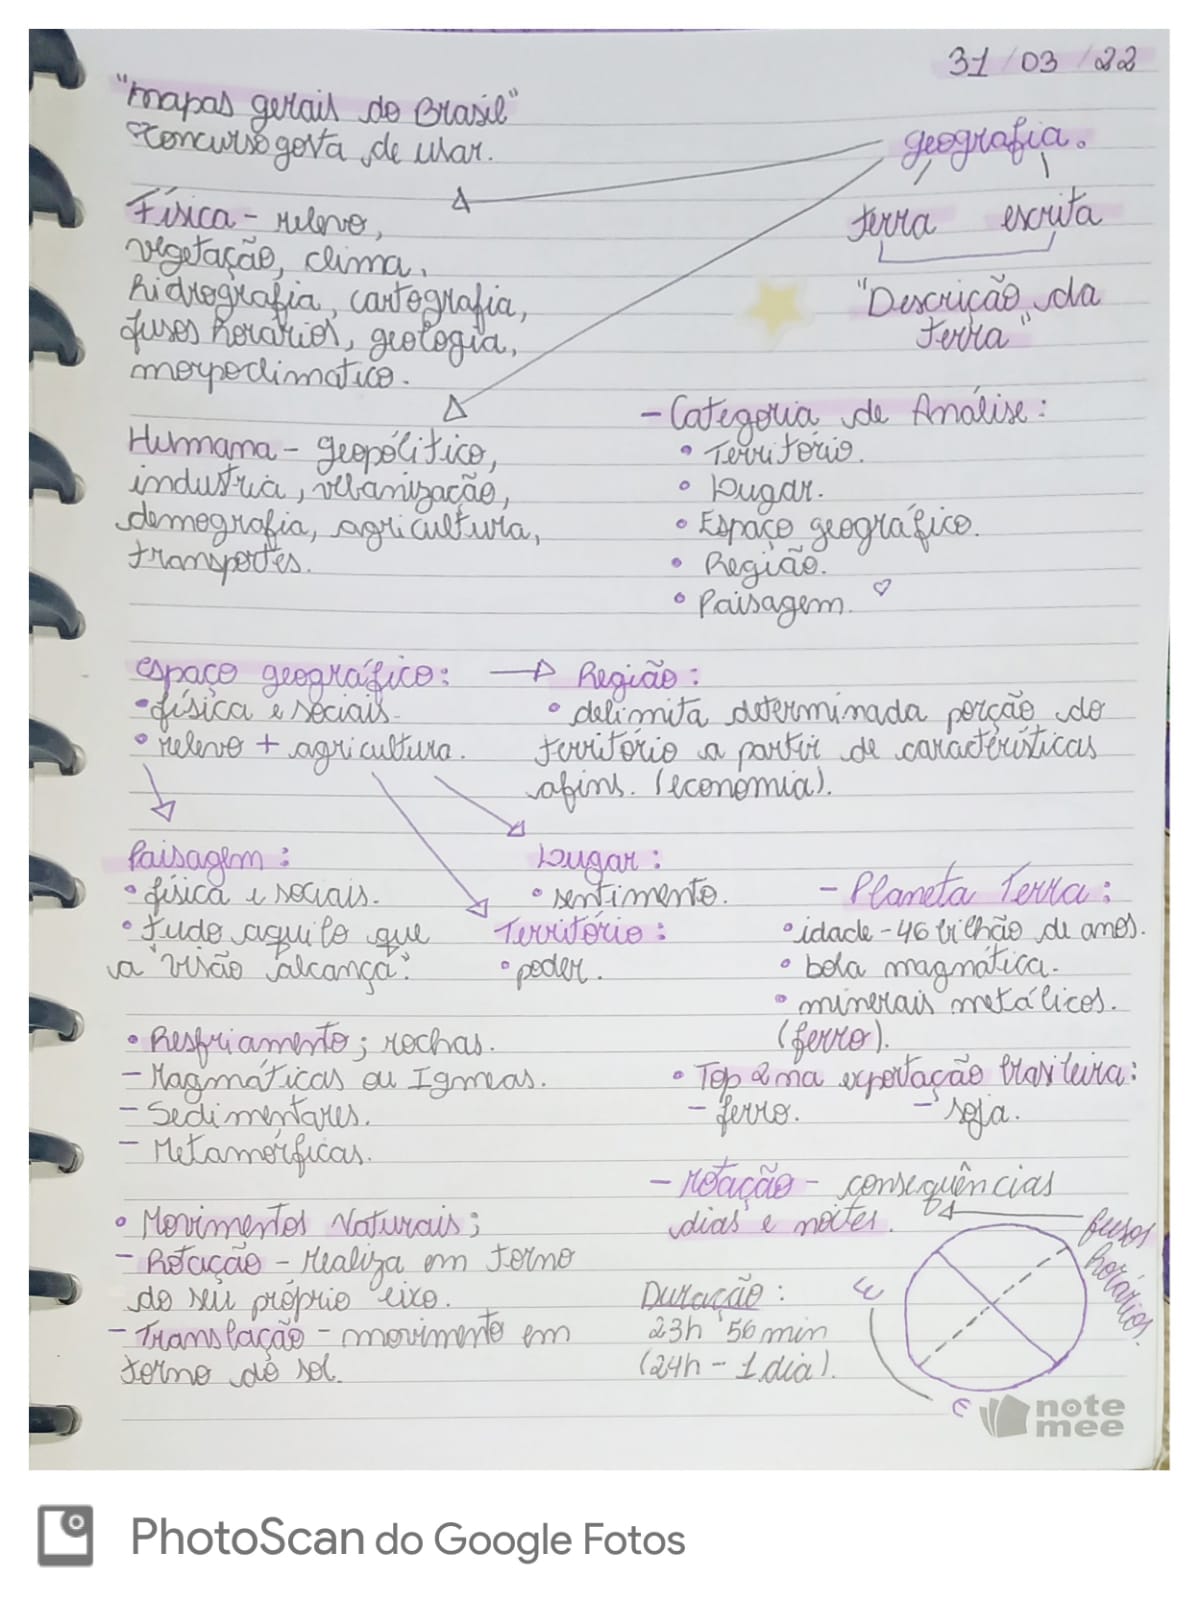 31/03/22
"mapas gerais do Brasil"
Concurso gosta de usar.
geografia.
terra escrita
"Descrição da
terra"
Física - relevo,
vegetação, clima,
hidrografia, cartografia,
fusos horários, geologia,
morpoclimatico.
Humana - geopólitico,
industria, urbanização,
demografia, agricultura,
transportes.
- Categoria de Análise:
• Território.
• Lugar.
• Espaço geográfico.
• Região.
• Paisagem.
espaço geográfico:
• física e sociais.
• relevo + agricultura.
Região:
• delimita determinada porção do
território a partir de características
afins. (economia).
Paisagem:
• física e sociais.
• tudo aquilo que
a "visão alcança".
Lugar:
• sentimento.
Território:
• poder.
- Planeta Terra:
• idade - 46 bilhão de anos.
• bola magmática.
• minerais metálicos.
(ferro).
• Resfriamento; rochas.
- Magmáticas ou Igmeas.
- Sedimentares.
- Metamórficas.
• Top 2 na exportação brasileira:
- ferro. - soja.
• Movimentos Naturais;
- Rotação - realiza em torno
do seu próprio eixo.
- Translação - movimento em
torno do sol.
- rotação - consequências
dias e noites.
fusos
horários.
Duração:
23h 56min
(24h - 1 dia).
note
mee
PhotoScan do Google Fotos